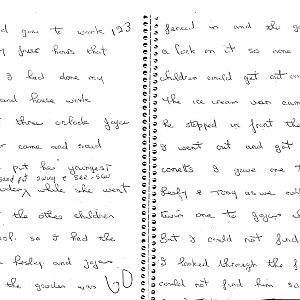 d gone to work 123
free hours that
I had done my
and house work
three oclock Joyce
came and said
put her youngest
put swing & see-saw
while she went
the other children
ool. so I had the
Lesley and Joyce
the garden was 60
fenced in and the g
a lock on it so none
children could get out on
The ice cream van cam
he stopped in front the
I went out and got
conetts I gave one t
Lesley & Tony as we call
twin one to Joyces
But I could not find
I looked through the f
could not find him so